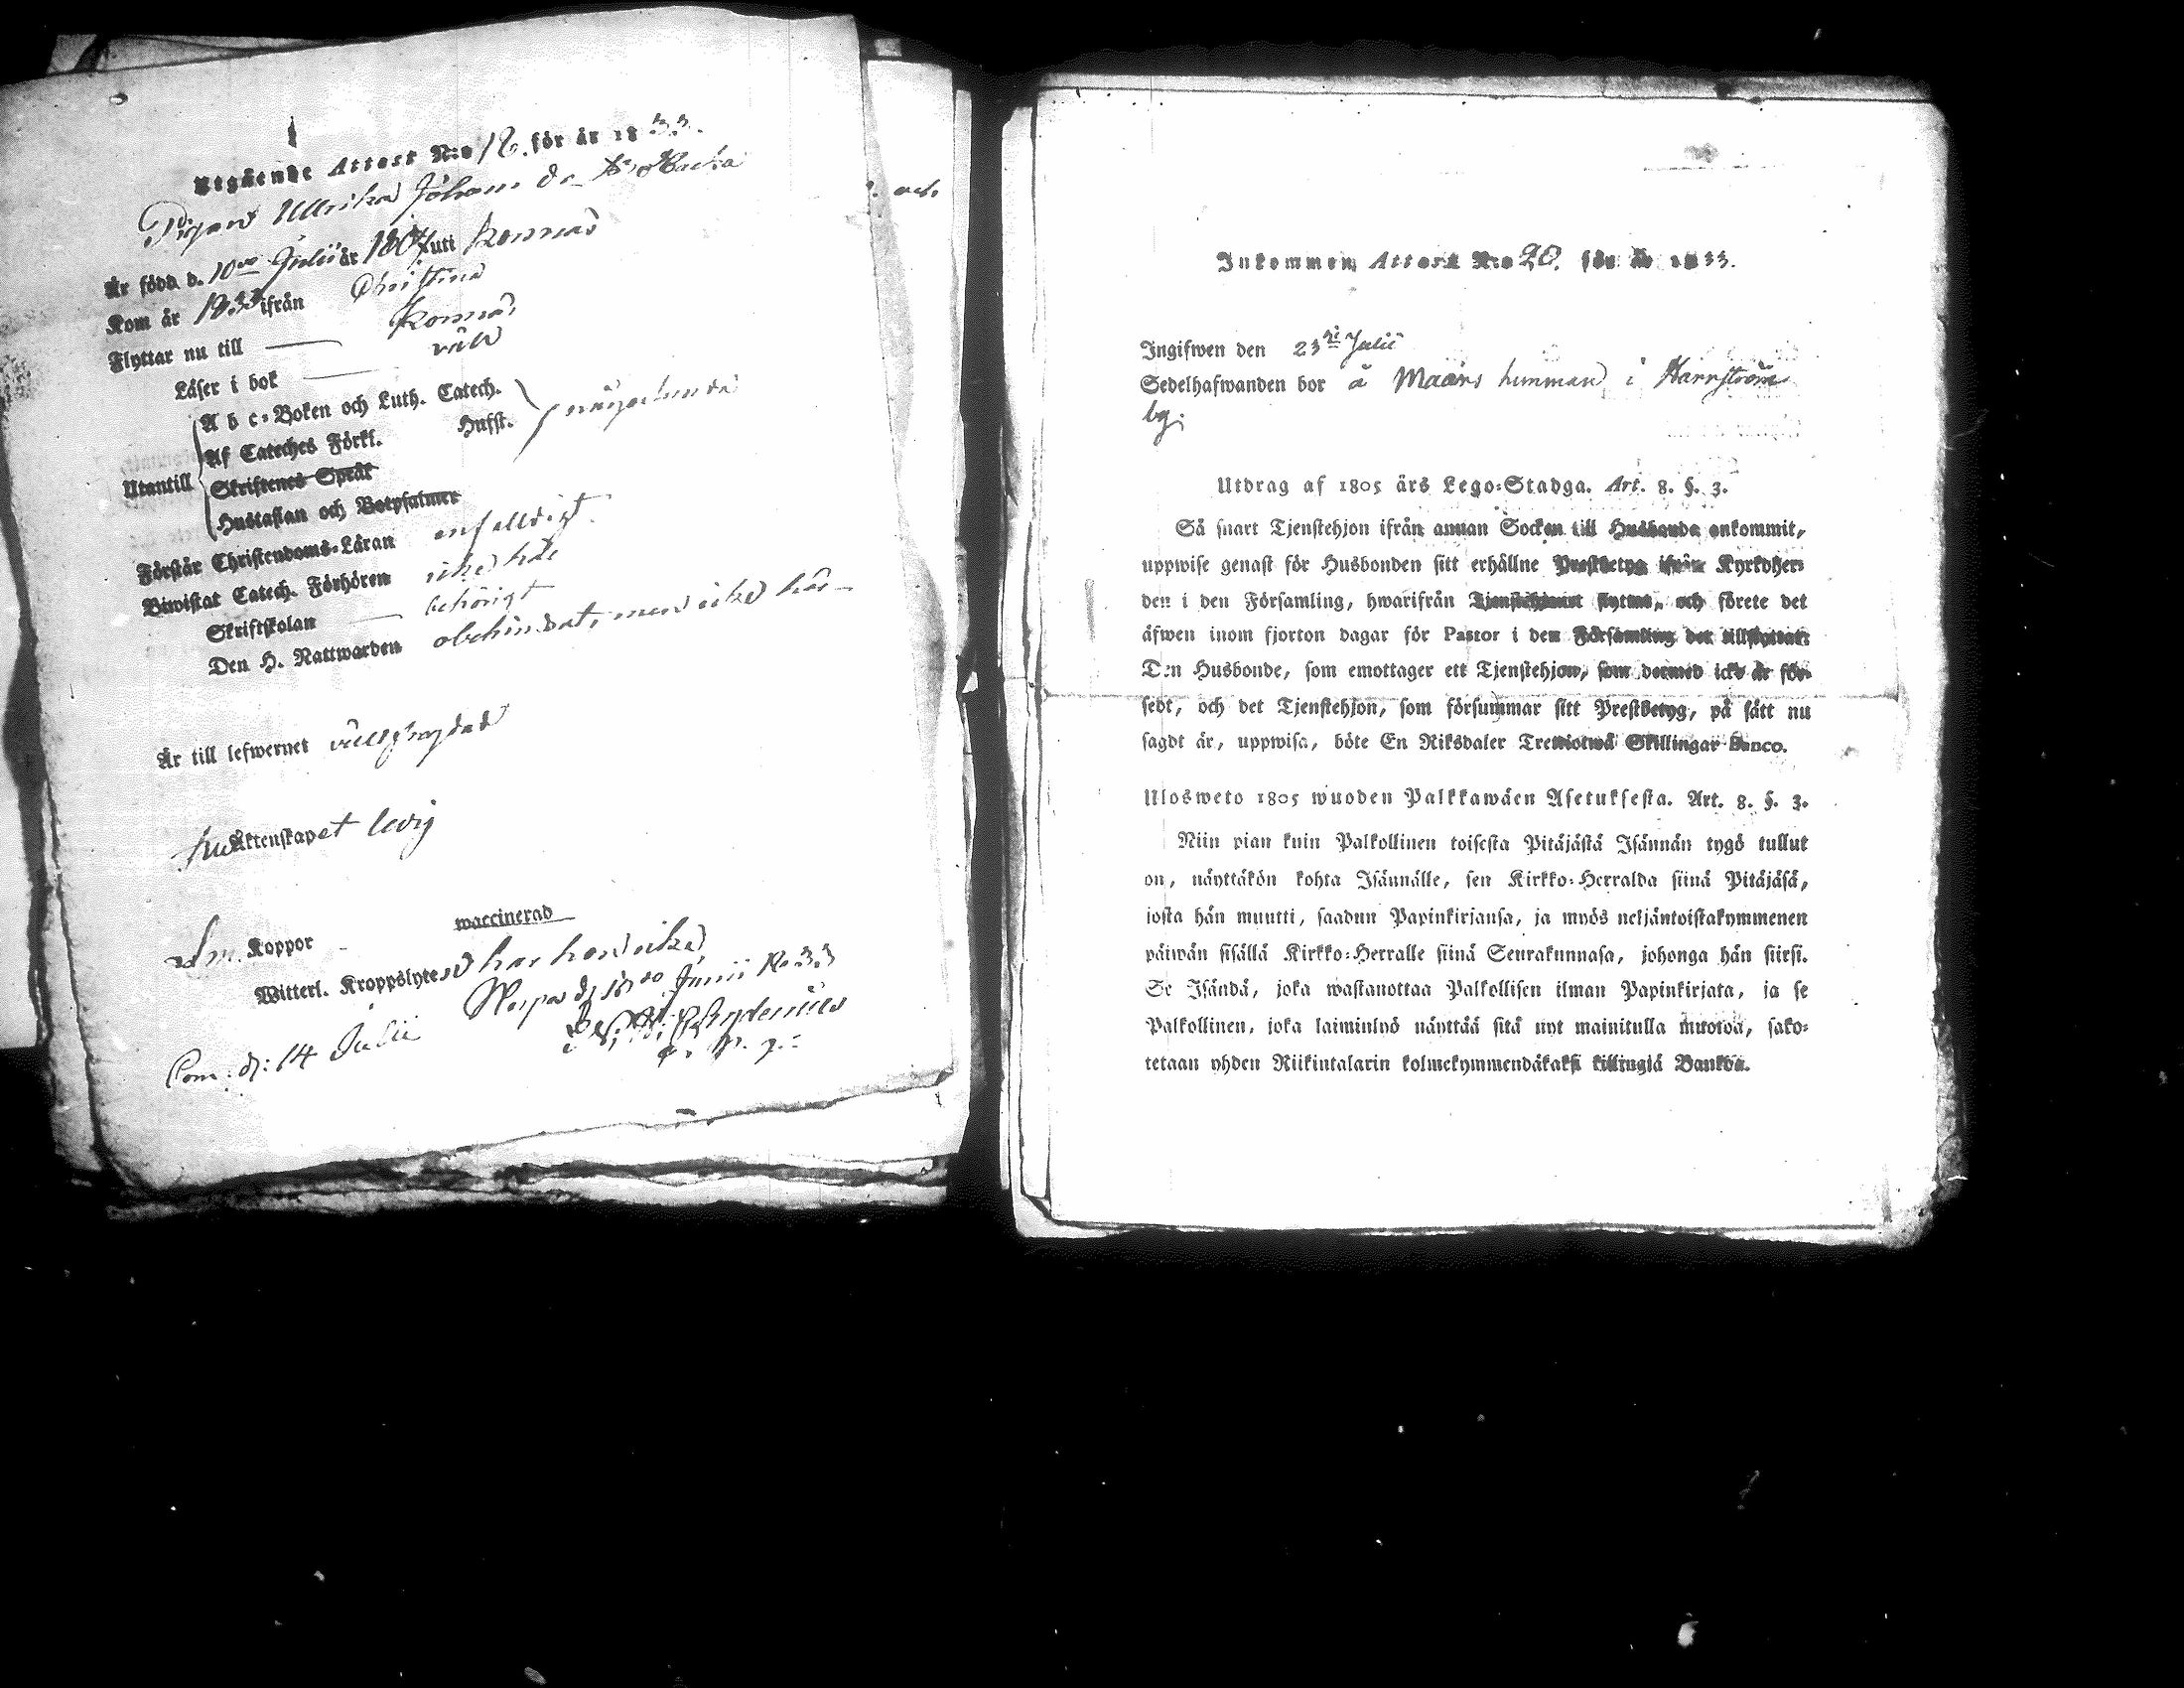 Utgående Attest N:o 18. för år 1833.
Pigan Ullrika Johans dr
Är född d. 10de Julii år 1807 uti Kornnäs
Kom år 1833 ifrån Christina
Flyttar nu till Kornnäs
Läser i bok väl
A b c-Boken och Luth. Catech.
Af Cateches Förkl. Husst. någorlunda
Utantill Skriftenes Språk
Hustaflan och Botpsalmer
Förstår Christendoms-Läran enfalldigt.
Biwistat Catech. Förhören icke här
Skriftskolan behörigt
Den H. Nattwarden obehindrat, men icke här
Är till lefwernet
Äktenskapet ledig
Koppor waccinerad
Witterl. Kroppslyten har hon icke
d. Junii 1833
Com. d: 14 Julii
Inkommen Attest N:o 20. för år 1833.
Ingifwen den 23 Julii
Sedelhafwanden bor å Maars himman i Harrström
by.
Utdrag af 1805 års Lego-Stadga. Art. 8. §. 3.
Så snart Tjenstehjon ifrån annan Socken till Husbonde ankommit,
uppwise genast för Husbonden sitt erhållne Prestbetyg ifrån Kyrkoher-
den i den Församling, hwarifrån Tjenstehjonet flyttat, och förete det
äfwen inom fjorton dagar för Pastor i den Församling det tillflyttat.
Den Husbonde, som emottager ett Tjenstehjon, som dermed icke är för-
sedt, och det Tjenstehjon, som försummar sitt Prestbetyg, på sätt nu
sagdt är, uppwisa, böte En Riksdaler Trettiotwå Skillingar Banco.
Ulosweto 1805 wuoden Palkkawäen Asetuksesta. Art. 8. §. 3.
Niin pian kuin Palkollinen toisesta Pitäjästä Isännän tygö tullut
on, näyttäkön kohta Isännälle, sen Kirkko-Herralda siinä Pitäjäsä,
josta hän muutti, saadun Papinkirjansa, ja myös neljäntoistakymmenen
päiwän sisällä Kirkko-Herralle siinä Seurakunnasa, johonga hän siirsi.
Se Isändä, joka wastanottaa Palkollisen ilman Papinkirjata, ja se
Palkollinen, joka laiminlyö näyttää sitä nyt mainitulla muotoa, sako-
tetaan yhden Riikintalarin kolmekymmendäkaksi killingiä Bankoa.